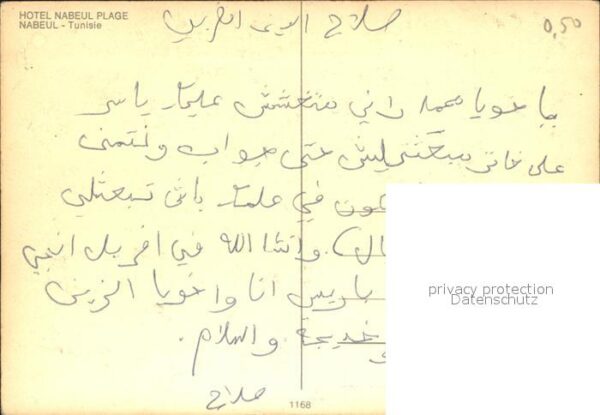 HOTEL NABEUL PLAGE
NABEUL - Tunisie
0,50
صلاح
يا خويا محمد راني متغشش عليك ياسر
على خاتر مبعثليش حتى جواب ونتمنى
في علمك باش تبعثلي
وانشا الله في افريل انجي
باريس انا واخويا الزين
خديجة والسلام.
صلاح
1168
privacy protection
Datenschutz